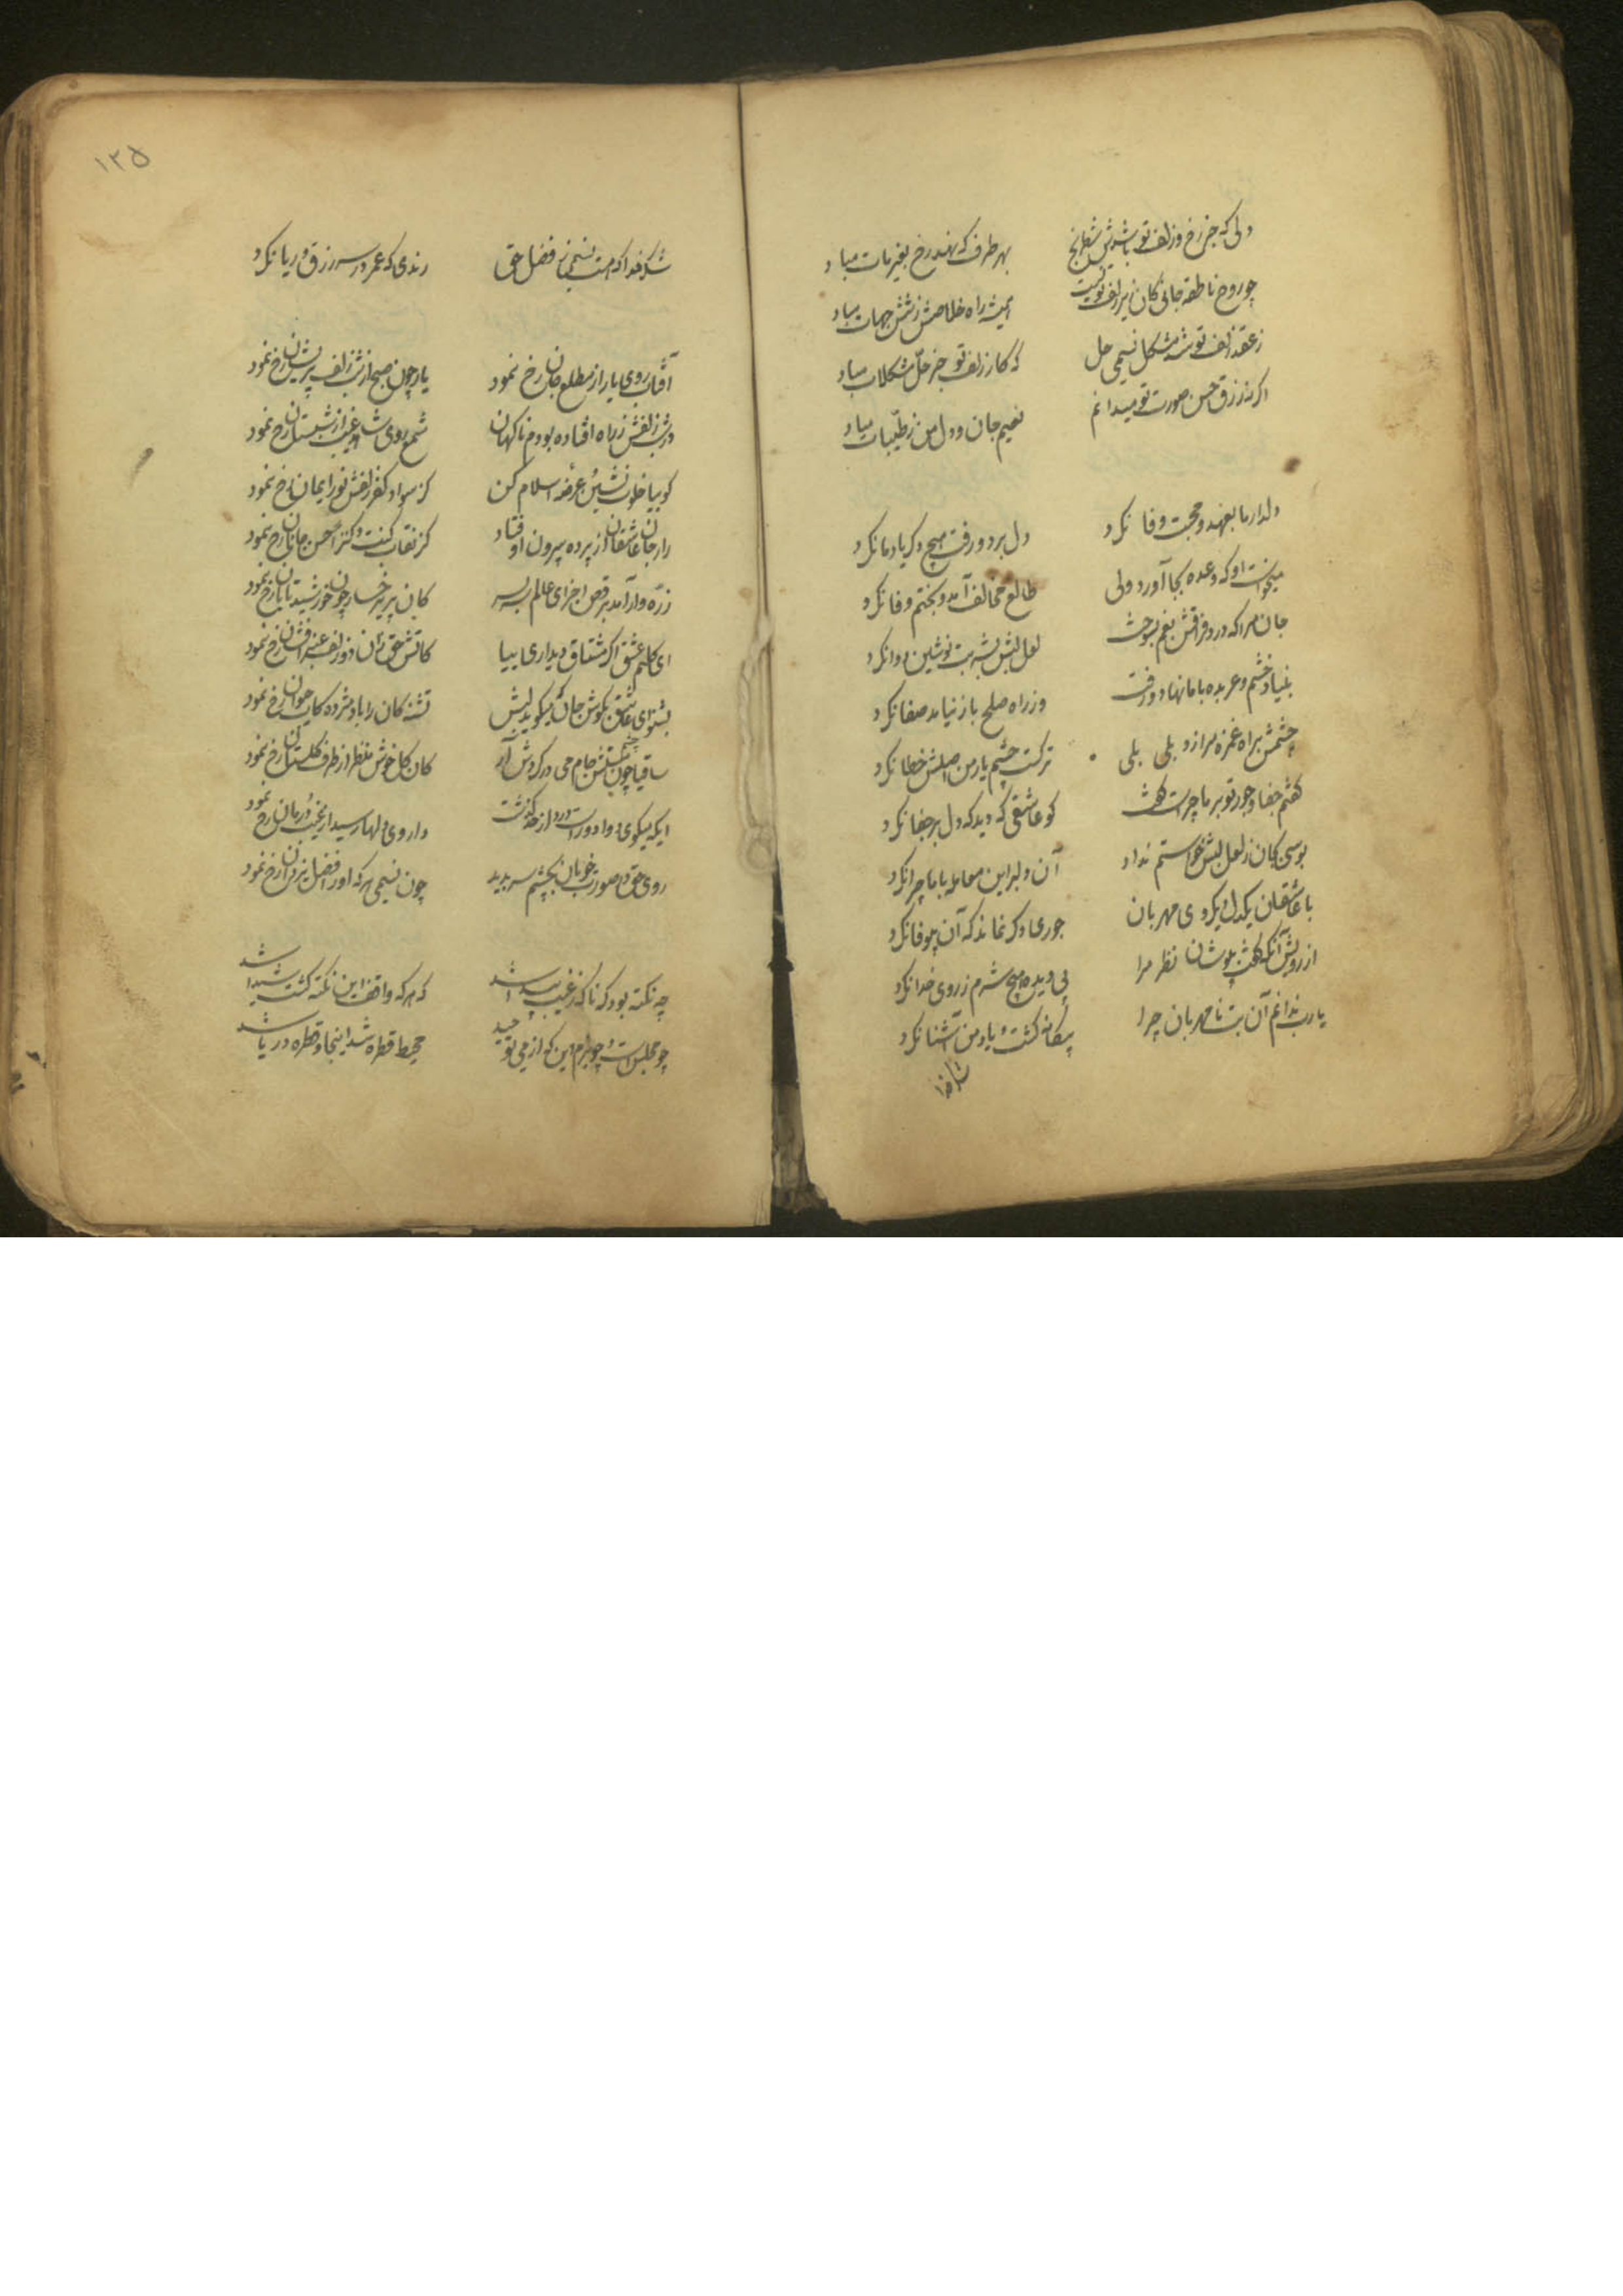 دلی که جز رخ و زلف تو باشدش شطرنج
بهر طرف که نهد رخ بغیر مات مباد
چو روح ناطقه جانی کان زیر زلف تو نیست
همیشه راه خلاصش ز شش جهات مباد
ز عقد زلف تو شد مشکل نسیمی حل
که کار زلف تو جز حل مشکلات مباد
اگر نه رزق حسن صورت تو میدانم
نعیم جان و دل من ز طیبات مباد
دلدار ما بعهد و محبت وفا نکرد
دل برد و رفت هیچ دگر یاد ما نکرد
میخواست او که وعده بجا آورد ولی
طالع مخالف آمد و بختم وفا نکرد
جان مرا که درد فراقش بغم بسوخت
لعل لبش بشربت نوشین دوا نکرد
بنیاد خشم و عربده با ما نهاد و رفت
وز راه صلح باز نیامد صفا نکرد
چشمش براه غمزه مرا زد بلی بلی
ترکست چشم یار من اصلش خطا نکرد
گفتم جفا و جور تو بر ما چراست گفت
کو عاشقی که دید که دلبر جفا نکرد
بوسی کان ز لعل لبش خواستم نداد
آن دلبر این معامله با ما چرا نکرد
با عاشقان یکدل و یکروی مهربان
جوری دگر نماند که آن بیوفا نکرد
از رویش آنکه گفت بپوشان نظر مرا
بی دیده هیچ شرم ز روی خدا نکرد
یارب ندانم آن بت نامهربان چرا
بیگانه گشت و یاد من آشنا نکرد
شکر خدا
۱۲۵
شکر خدا که هست نسیمی ز فضل حق
رندی که عمر در سر زرق و ریا نکرد
آفتاب روی یار از مطلع جان رخ نمود
یا رب چون صبح از شب زلف پریشان رخ نمود
در شب زلفش ز راه افتاده بودم ناگهان
شمع روی شاهد غیب از شبستان رخ نمود
کو بیا خلوت نشین و عرضه اسلام کن
کز سواد کفر زلفش نور ایمان رخ نمود
راز جان عاشقان از پرده بیرون اوفتاد
کز نقاب کنت کنزا حسن جانان رخ نمود
ذره وار آمد برقص اجزای عالم سر بسر
کان پریرخسار چون خورشید تابان رخ نمود
ای کلیم عشق اگر مشتاق دیداری بیا
کاتش حق زان دو زلف عنبر افشان رخ نمود
بشنو ای عاشق بگوش جان که میگوید لبش
تشنگان را باد مژده کاب حیوان رخ نمود
ساقیا چون چشم مستش جام می در گردش آر
کان گل خوش منظر از طرف گلستان رخ نمود
ایکه میگوی دوا دورست و درد از حد گذشت
داروی دلها رسید از غیب و درمان رخ نمود
روی حق در صورت خوبان بچشم سر بدید
چون نسیمی هر که او را فضل یزدان رخ نمود
چه نکته بود که ناگه ز غیب پیدا شد
که هر که واقف این نکته گشت شیدا شد
چه مجلس است و چه بزم این که از می توحید
محیط قطره شد اینجا و قطره دریا شد